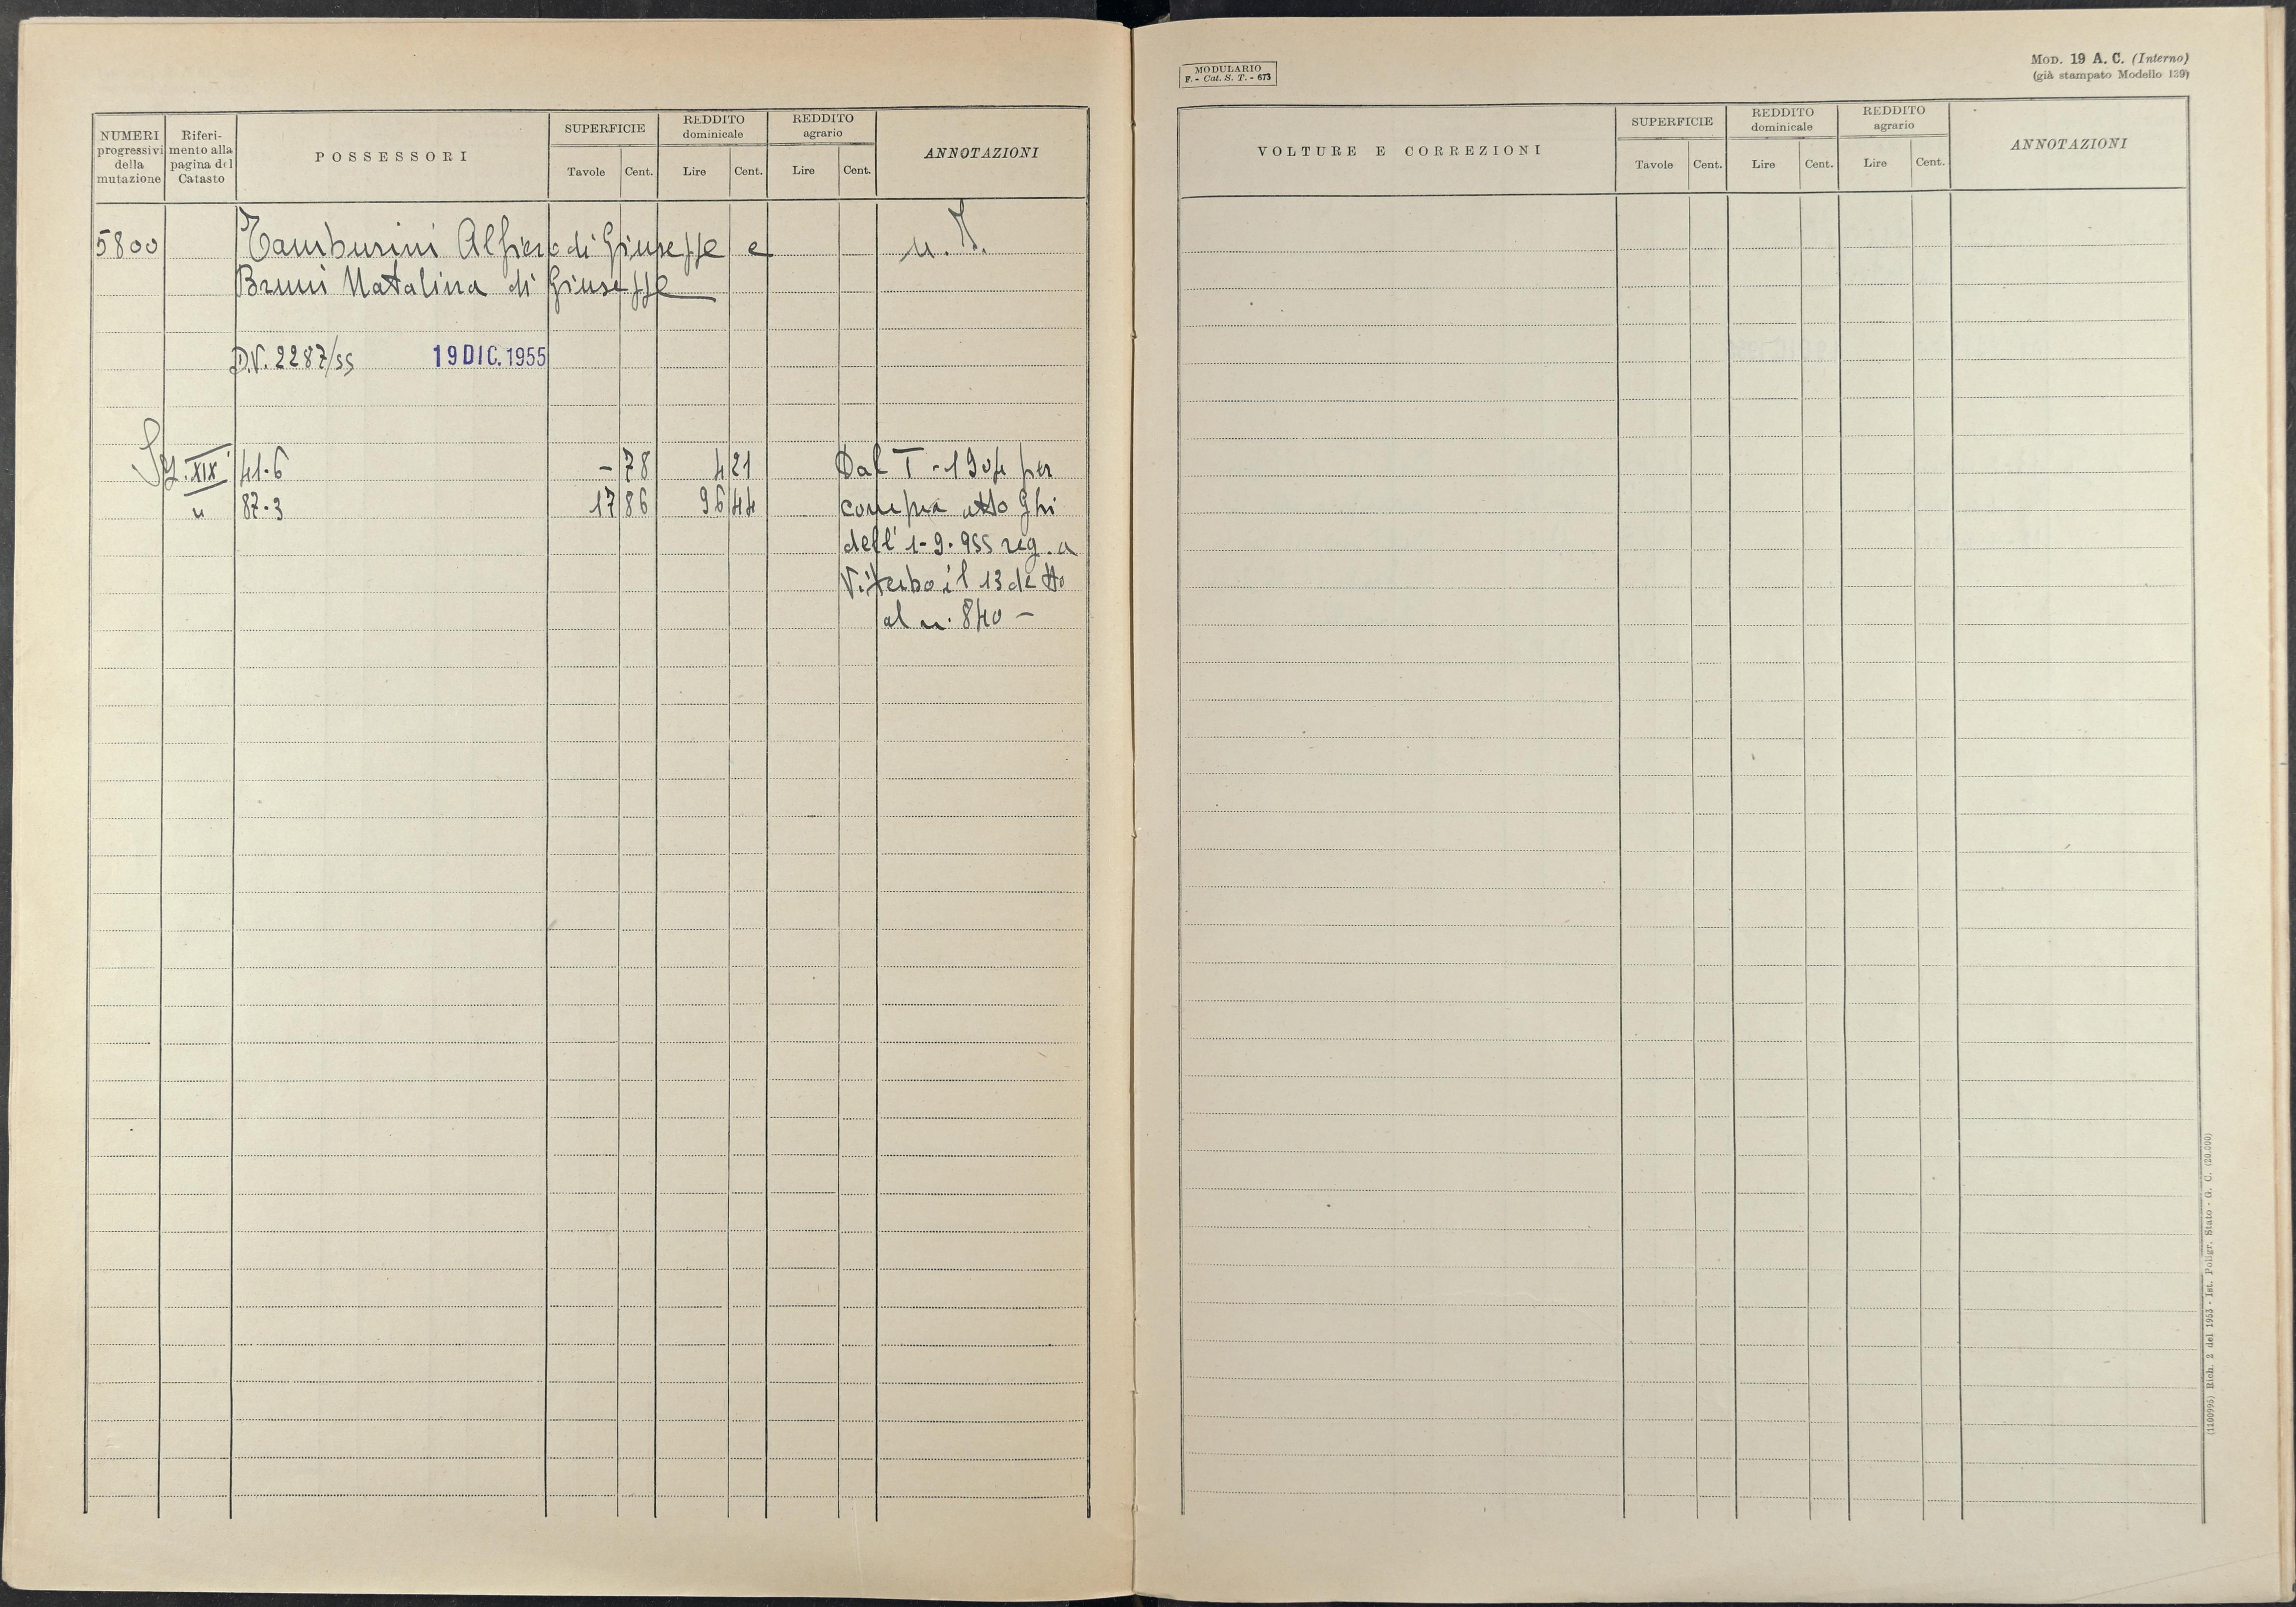 NUMERI progressivi della mutazione
Riferimento alla pagina del Catasto
POSSESSORI
SUPERFICIE
Tavole Cent.
REDDITO dominicale
Lire Cent.
REDDITO agrario
Lire Cent.
ANNOTAZIONI
5800 Tamburini Alfiero di Giuseppe e
Bruni Natalina di Giuseppe
D.V. 2287/55 19 DIC. 1955
XIX 41·6 - 78 4 21 Dal T - 1904 per
" 87·3 17 86 96 44 compra atto Ghi
dell' 1-9-955 reg. a
Viterbo il 13 detto
al n. 840 -
MODULARIO
F. - Cat. S. T. - 673
MOD. 19 A. C. (Interno)
(già stampato Modello 129)
VOLTURE E CORREZIONI
SUPERFICIE
Tavole Cent.
REDDITO dominicale
Lire Cent.
REDDITO agrario
Lire Cent.
ANNOTAZIONI
(1100995) Rich. 2 del 1953 - Ist. Poligr. Stato - G. C. (20.000)